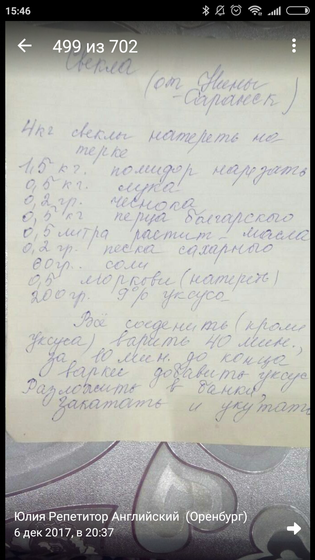 15:46
499 из 702
Свекла
(от Нины
-Саранск)
4кг свеклы натереть на
терке
1,5 кг. помидор нарезать
0,5 кг. лука
0,2 гр. чеснока
0,5 кг перца болгарского
0,5 литра растит-масла
0,2 гр. песка сахарного
60гр. соли
0,5 моркови (натереть)
200гр. 9% уксуса
Всё соеденить (кроме
уксуса) варить 40 мин.
за 10 мин. до конца,
варки добавить уксус
Разложить в банки,
закатать и укутать
Юлия Репетитор Английский (Оренбург)
6 дек 2017, в 20:37